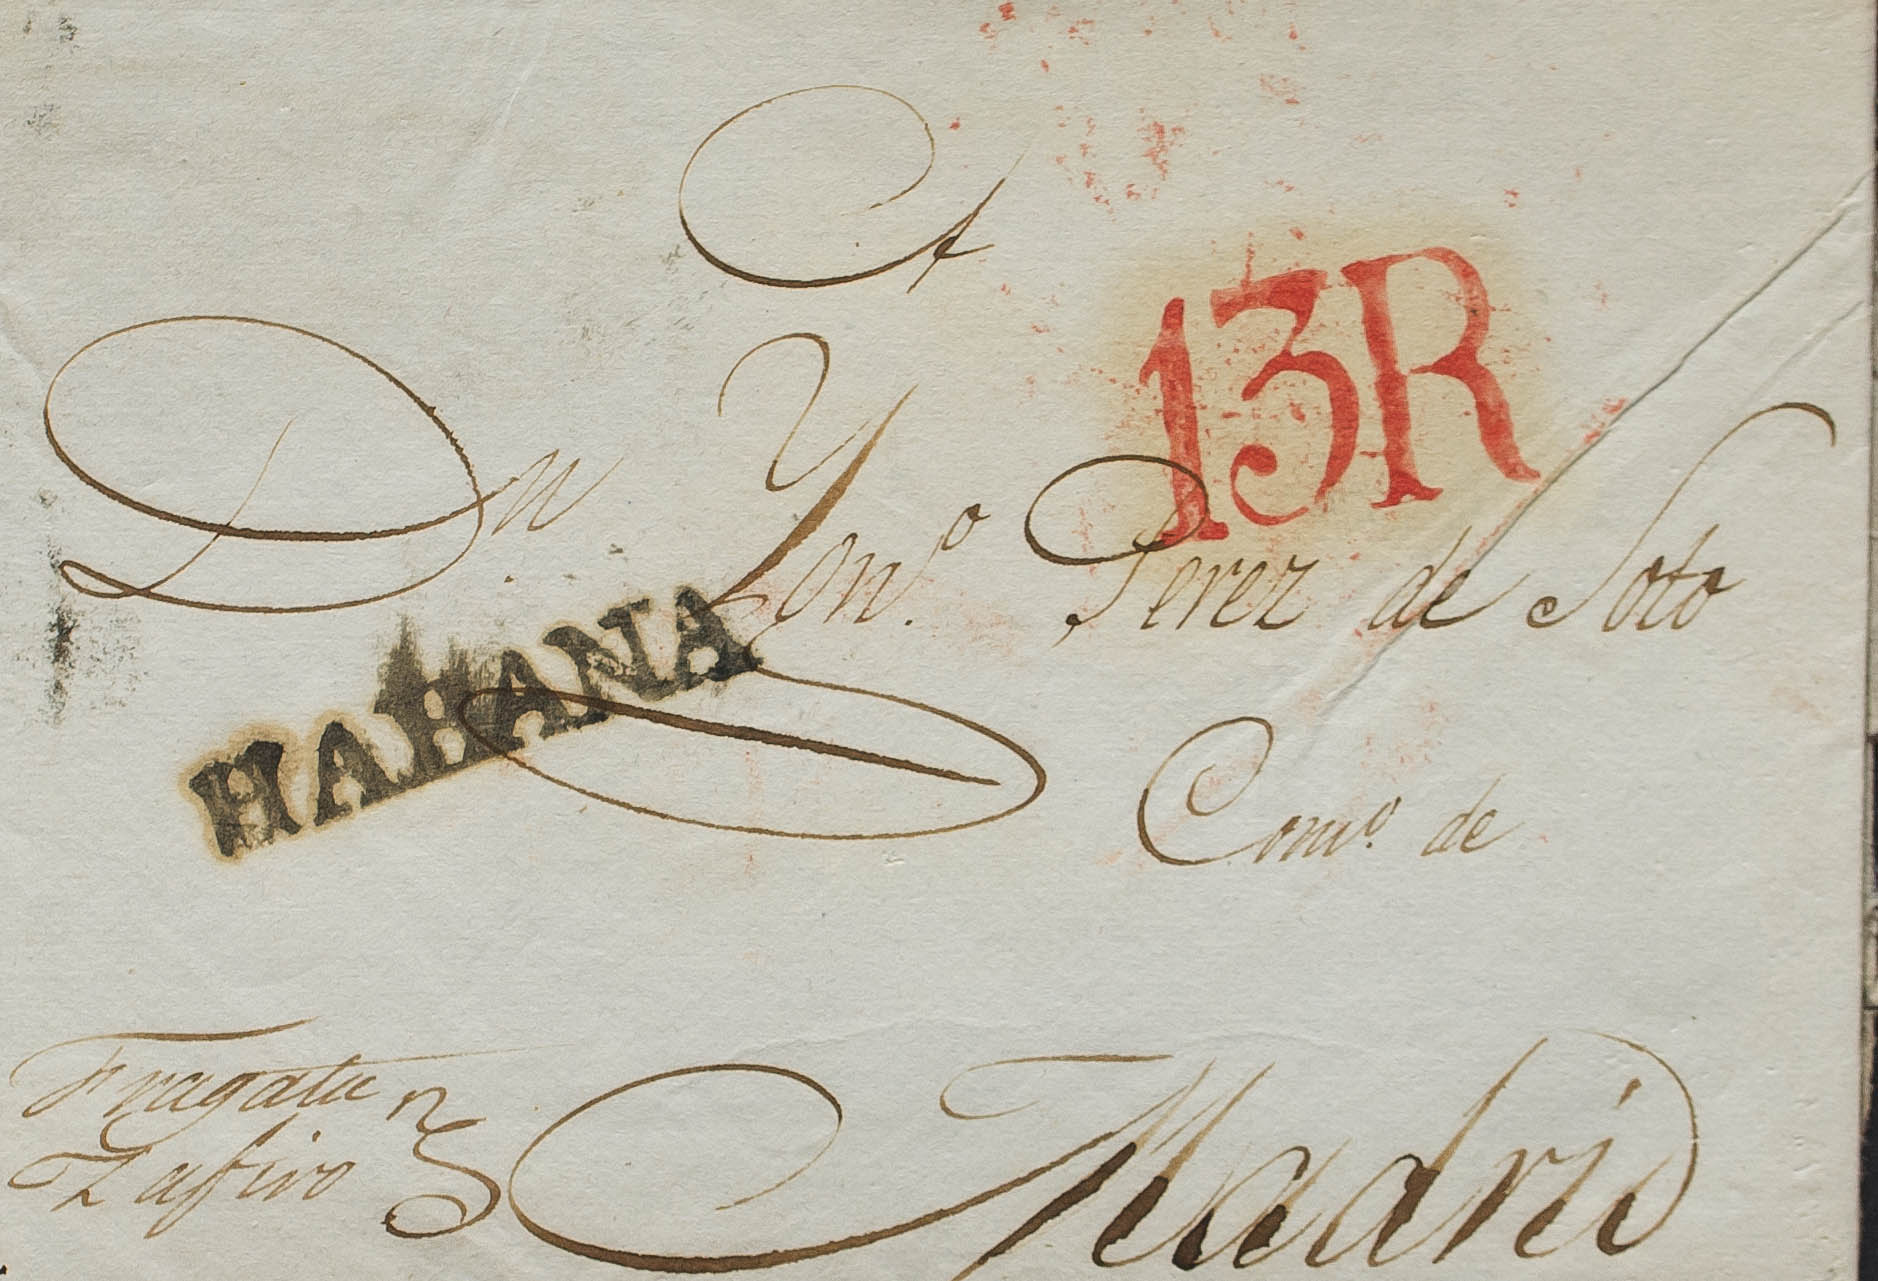 A
13R
Dn. Yon.º Perez de Soto
HABANA
Com.º de
Fragata
Zafiro
Madrid